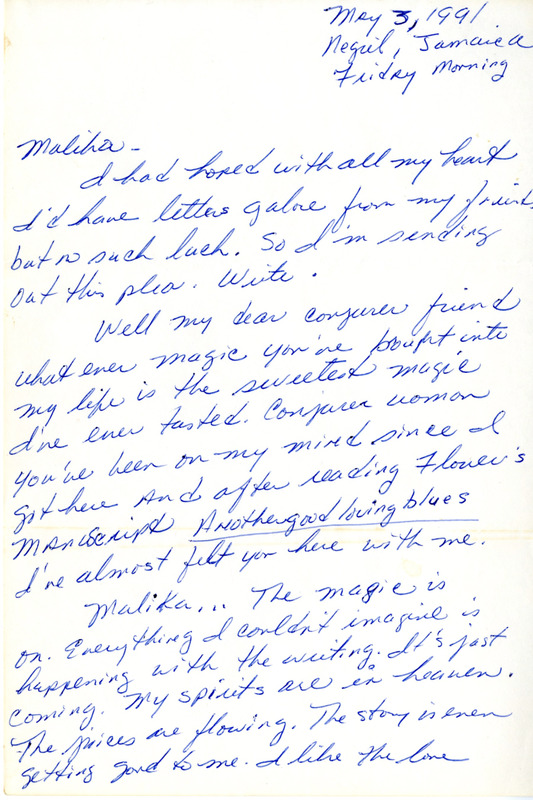 May 3, 1991
Negril, Jamaica
Friday Morning
Malika -
I had hoped with all my heart
I'd have letters galore from my friends
but no such luck. So I'm sending
out this plea. Write.
Well my dear conjurer friend
what ever magic you've bought into
my life is the sweetest magic
I've ever tasted. Conjurer woman
you've been on my mind since I
got here And after reading Flower's
Manuscript Another good loving blues
I've almost felt you here with me.
Malika... The magic is
on. Everything I couldn't imagine is
happening with the writing. It's just
coming. My spirits are in heaven.
The juices are flowing. The story is even
getting good to me. I like the love